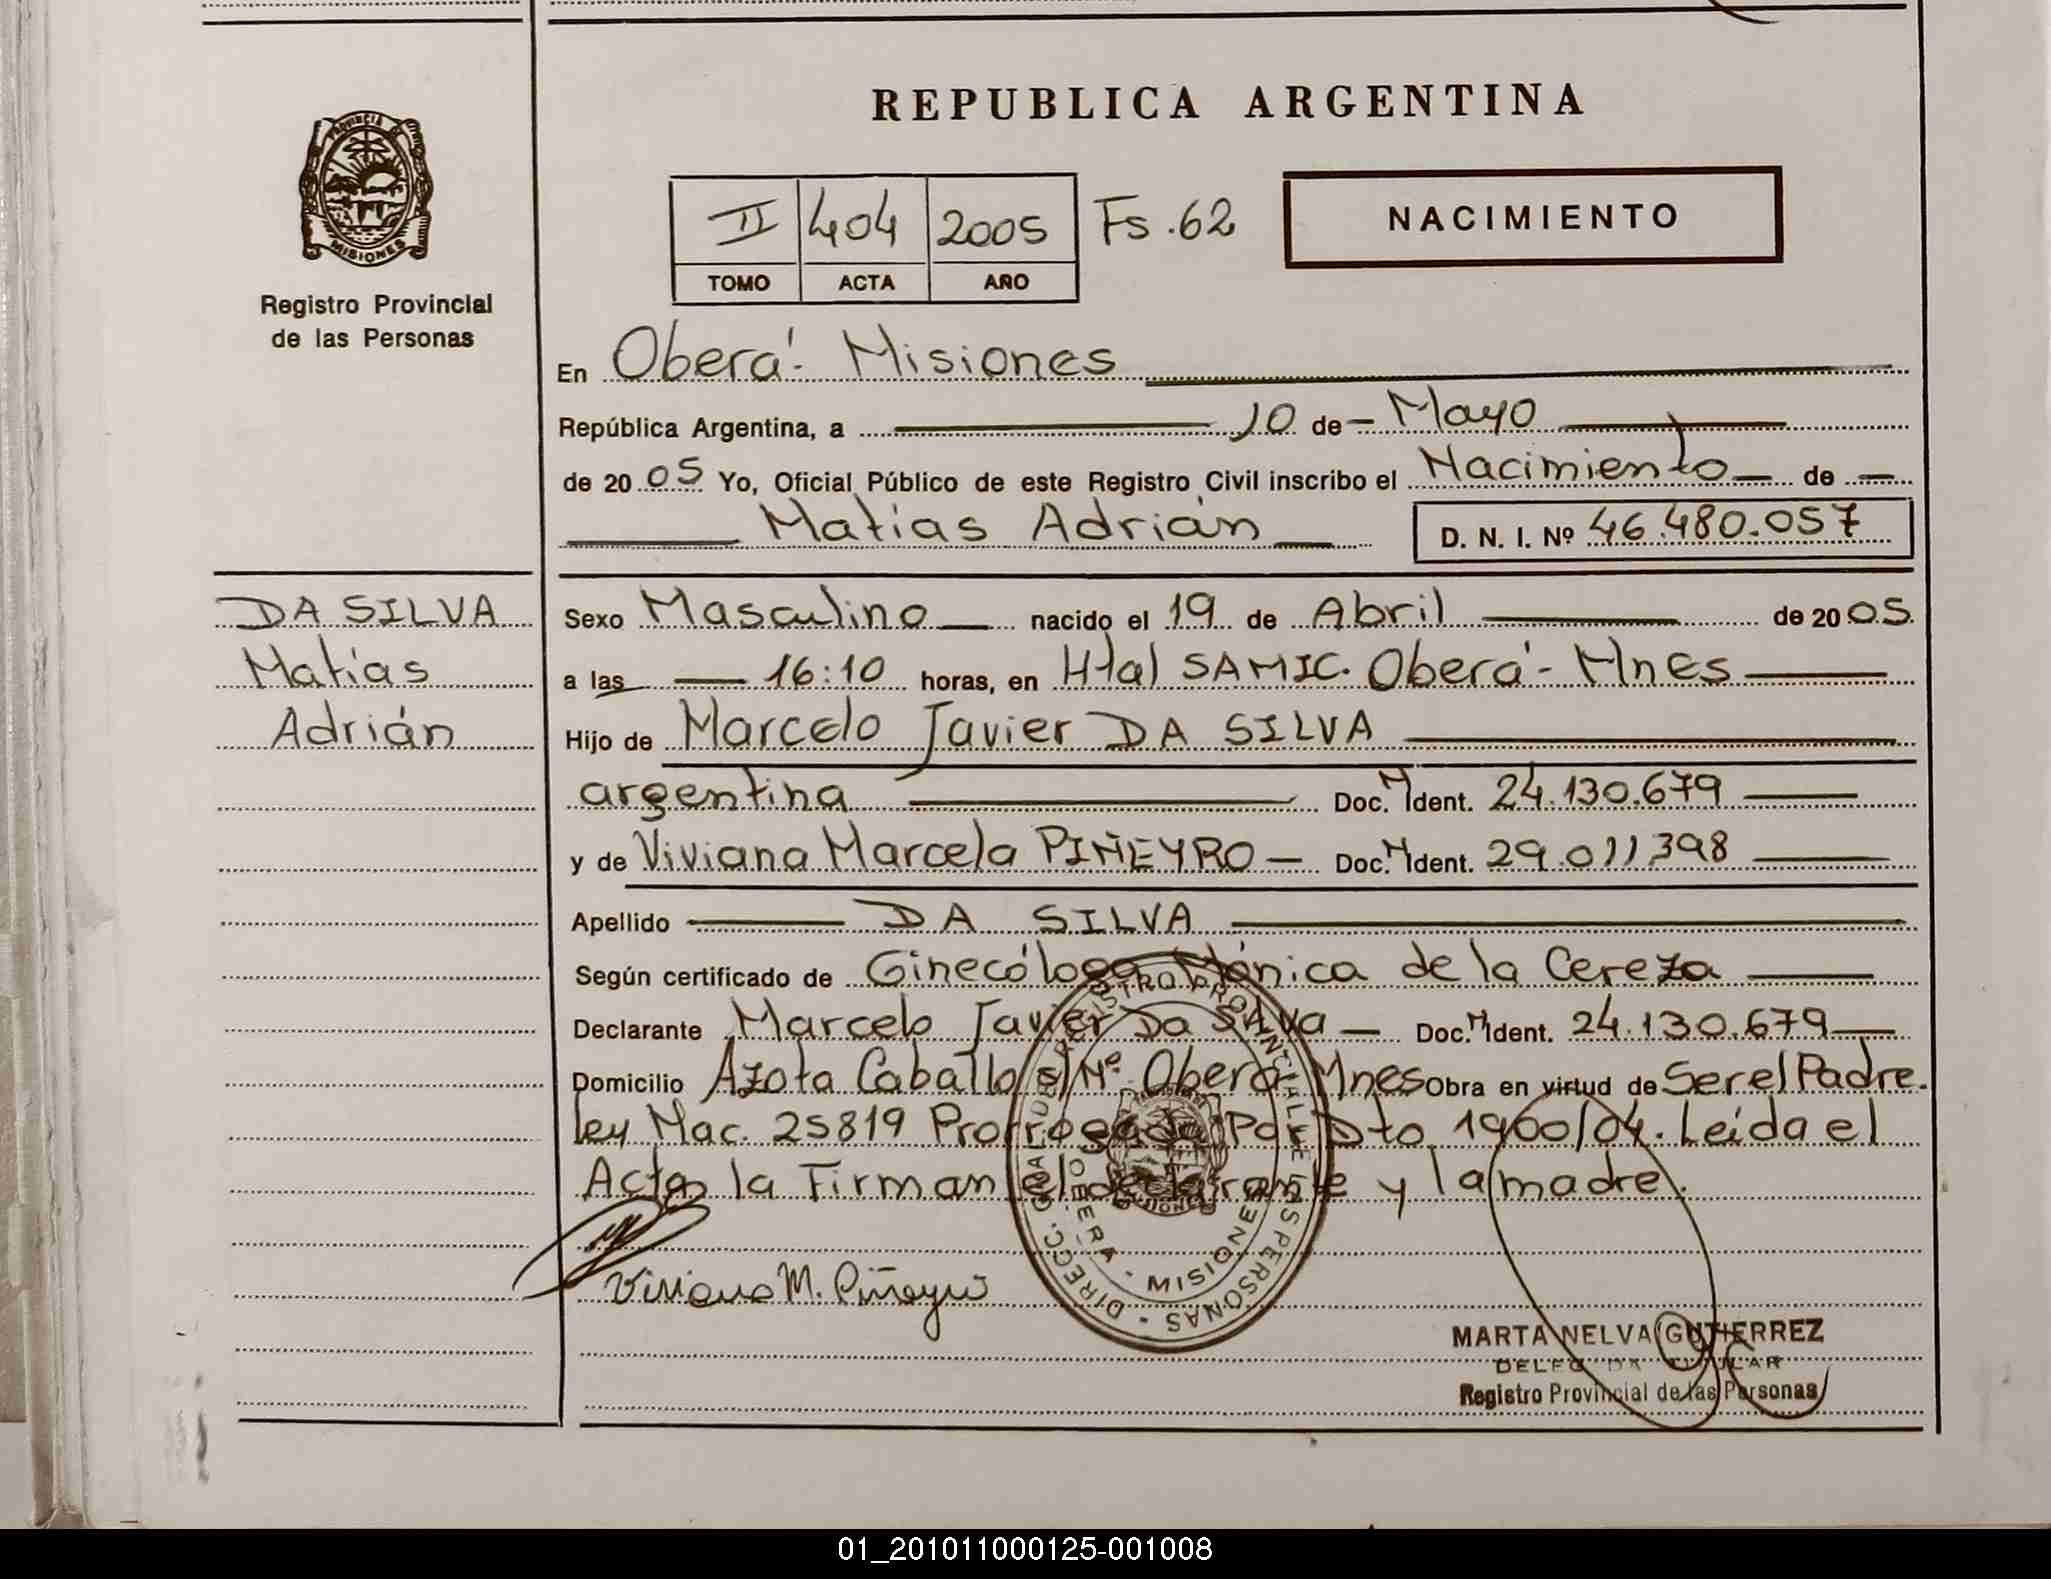 REPUBLICA ARGENTINA
PROVINCIA DE
MISIONES
Registro Provincial
de las Personas
II 404 2005 Fs. 62
TOMO ACTA AÑO
NACIMIENTO
En Oberá - Misiones
República Argentina, a 10 de Mayo
de 2005 Yo, Oficial Público de este Registro Civil inscribo el Nacimiento de
Matías Adrián D. N. I. Nº 46.480.057
DA SILVA
Matías
Adrián
Sexo Masculino nacido el 19 de Abril de 2005.
a las 16:10 horas, en Htal SAMIC. Oberá - Mnes
Hijo de Marcelo Javier DA SILVA
argentina Doc. N Ident. 24.130.679
y de Viviana Marcela PIÑEYRO Doc. N Ident. 29.011.398
Apellido DA SILVA
Según certificado de Ginecóloga Mónica de la Cereza
Declarante Marcelo Javier Da Silva Doc. N Ident. 24.130.679
Domicilio Azota Caballo s/Nº Oberá Mnes Obra en virtud de Ser el Padre.
ley Nac. 25819 Prorrogada Por Dto 1900/04. Leída el
Acta la Firman el declarante y la madre.
Viviana M. Piñeyro
DIRECC. GRAL DEL REGISTRO PROVINCIAL DE LAS PERSONAS
OBERA - MISIONES
MARTA NELVA GUTIERREZ
DELEGADA TITULAR
Registro Provincial de las Personas
01_201011000125-001008